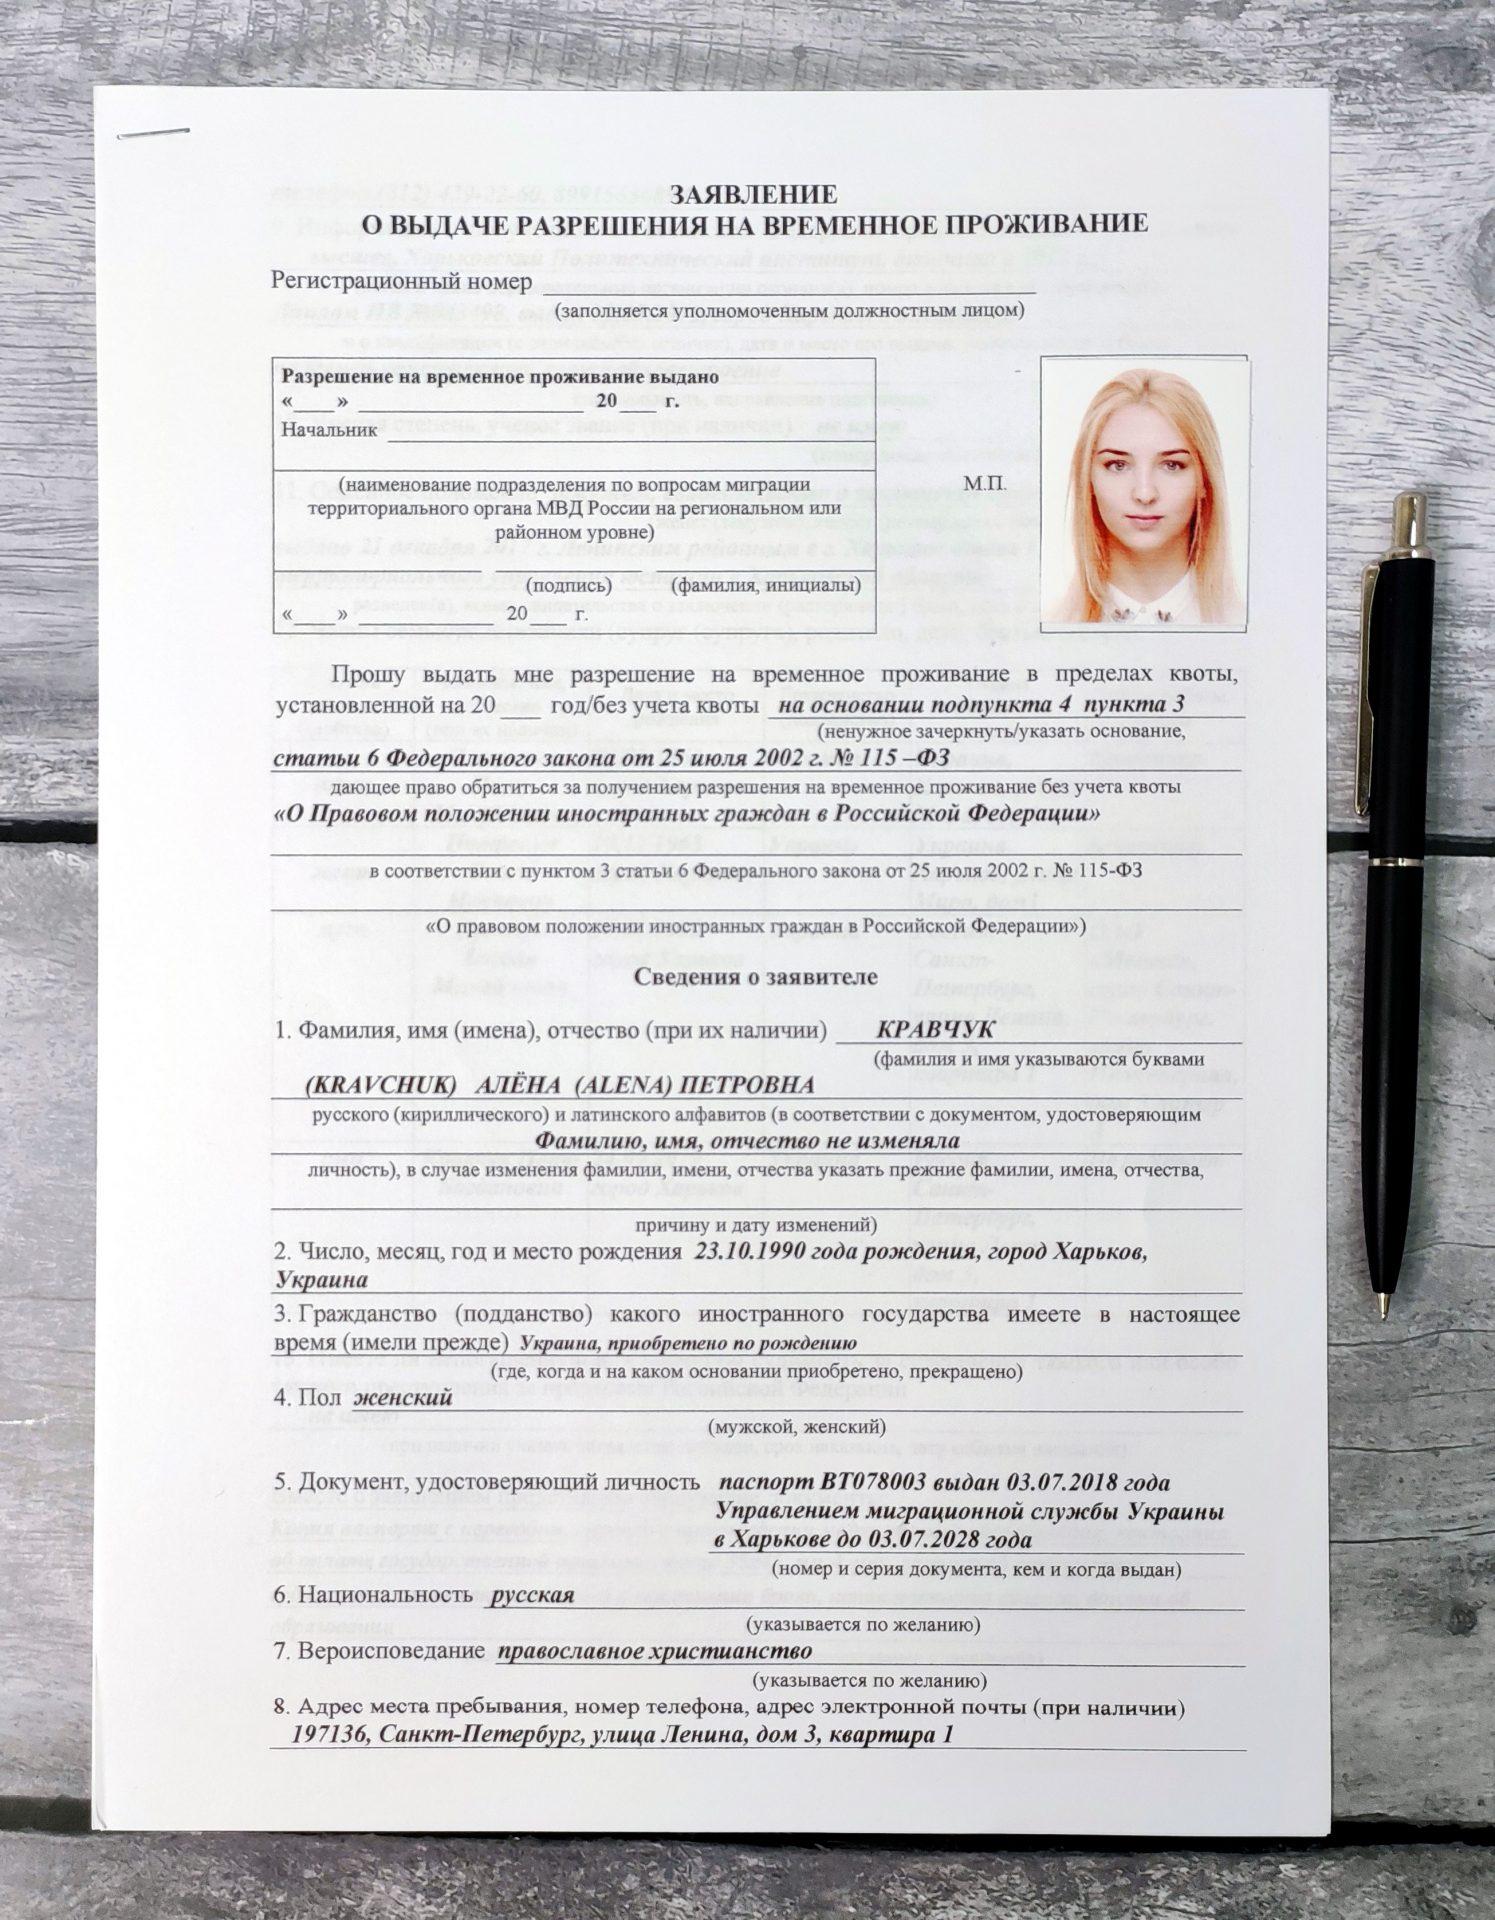 ЗАЯВЛЕНИЕ
О ВЫДАЧЕ РАЗРЕШЕНИЯ НА ВРЕМЕННОЕ ПРОЖИВАНИЕ
Регистрационный номер ____
(заполняется уполномоченным должностным лицом)
Разрешение на временное проживание выдано
«___» ____ 20___ г.
Начальник ____
(наименование подразделения по вопросам миграции
территориального органа МВД России на региональном или
районном уровне)
(подпись) (фамилия, инициалы)
«___» ____ 20___ г.
М.П.
Прошу выдать мне разрешение на временное проживание в пределах квоты,
установленной на 20 ___ год/без учета квоты на основании подпункта 4 пункта 3
(ненужное зачеркнуть/указать основание,
статьи 6 Федерального закона от 25 июля 2002 г. № 115 –ФЗ
дающее право обратиться за получением разрешения на временное проживание без учета квоты
«О Правовом положении иностранных граждан в Российской Федерации»
в соответствии с пунктом 3 статьи 6 Федерального закона от 25 июля 2002 г. № 115-ФЗ
«О правовом положении иностранных граждан в Российской Федерации»)
Сведения о заявителе
1. Фамилия, имя (имена), отчество (при их наличии) КРАВЧУК
(фамилия и имя указываются буквами
(KRAVCHUK) АЛЁНА (ALENA) ПЕТРОВНА
русского (кириллического) и латинского алфавитов (в соответствии с документом, удостоверяющим
Фамилию, имя, отчество не изменяла
личность), в случае изменения фамилии, имени, отчества указать прежние фамилии, имена, отчества,
причину и дату изменений)
2. Число, месяц, год и место рождения 23.10.1990 года рождения, город Харьков,
Украина
3. Гражданство (подданство) какого иностранного государства имеете в настоящее
время (имели прежде) Украина, приобретено по рождению
(где, когда и на каком основании приобретено, прекращено)
4. Пол женский
(мужской, женский)
5. Документ, удостоверяющий личность паспорт ВТ078003 выдан 03.07.2018 года
Управлением миграционной службы Украины
в Харькове до 03.07.2028 года
(номер и серия документа, кем и когда выдан)
6. Национальность русская
(указывается по желанию)
7. Вероисповедание православное христианство
(указывается по желанию)
8. Адрес места пребывания, номер телефона, адрес электронной почты (при наличии)
197136, Санкт-Петербург, улица Ленина, дом 3, квартира 1